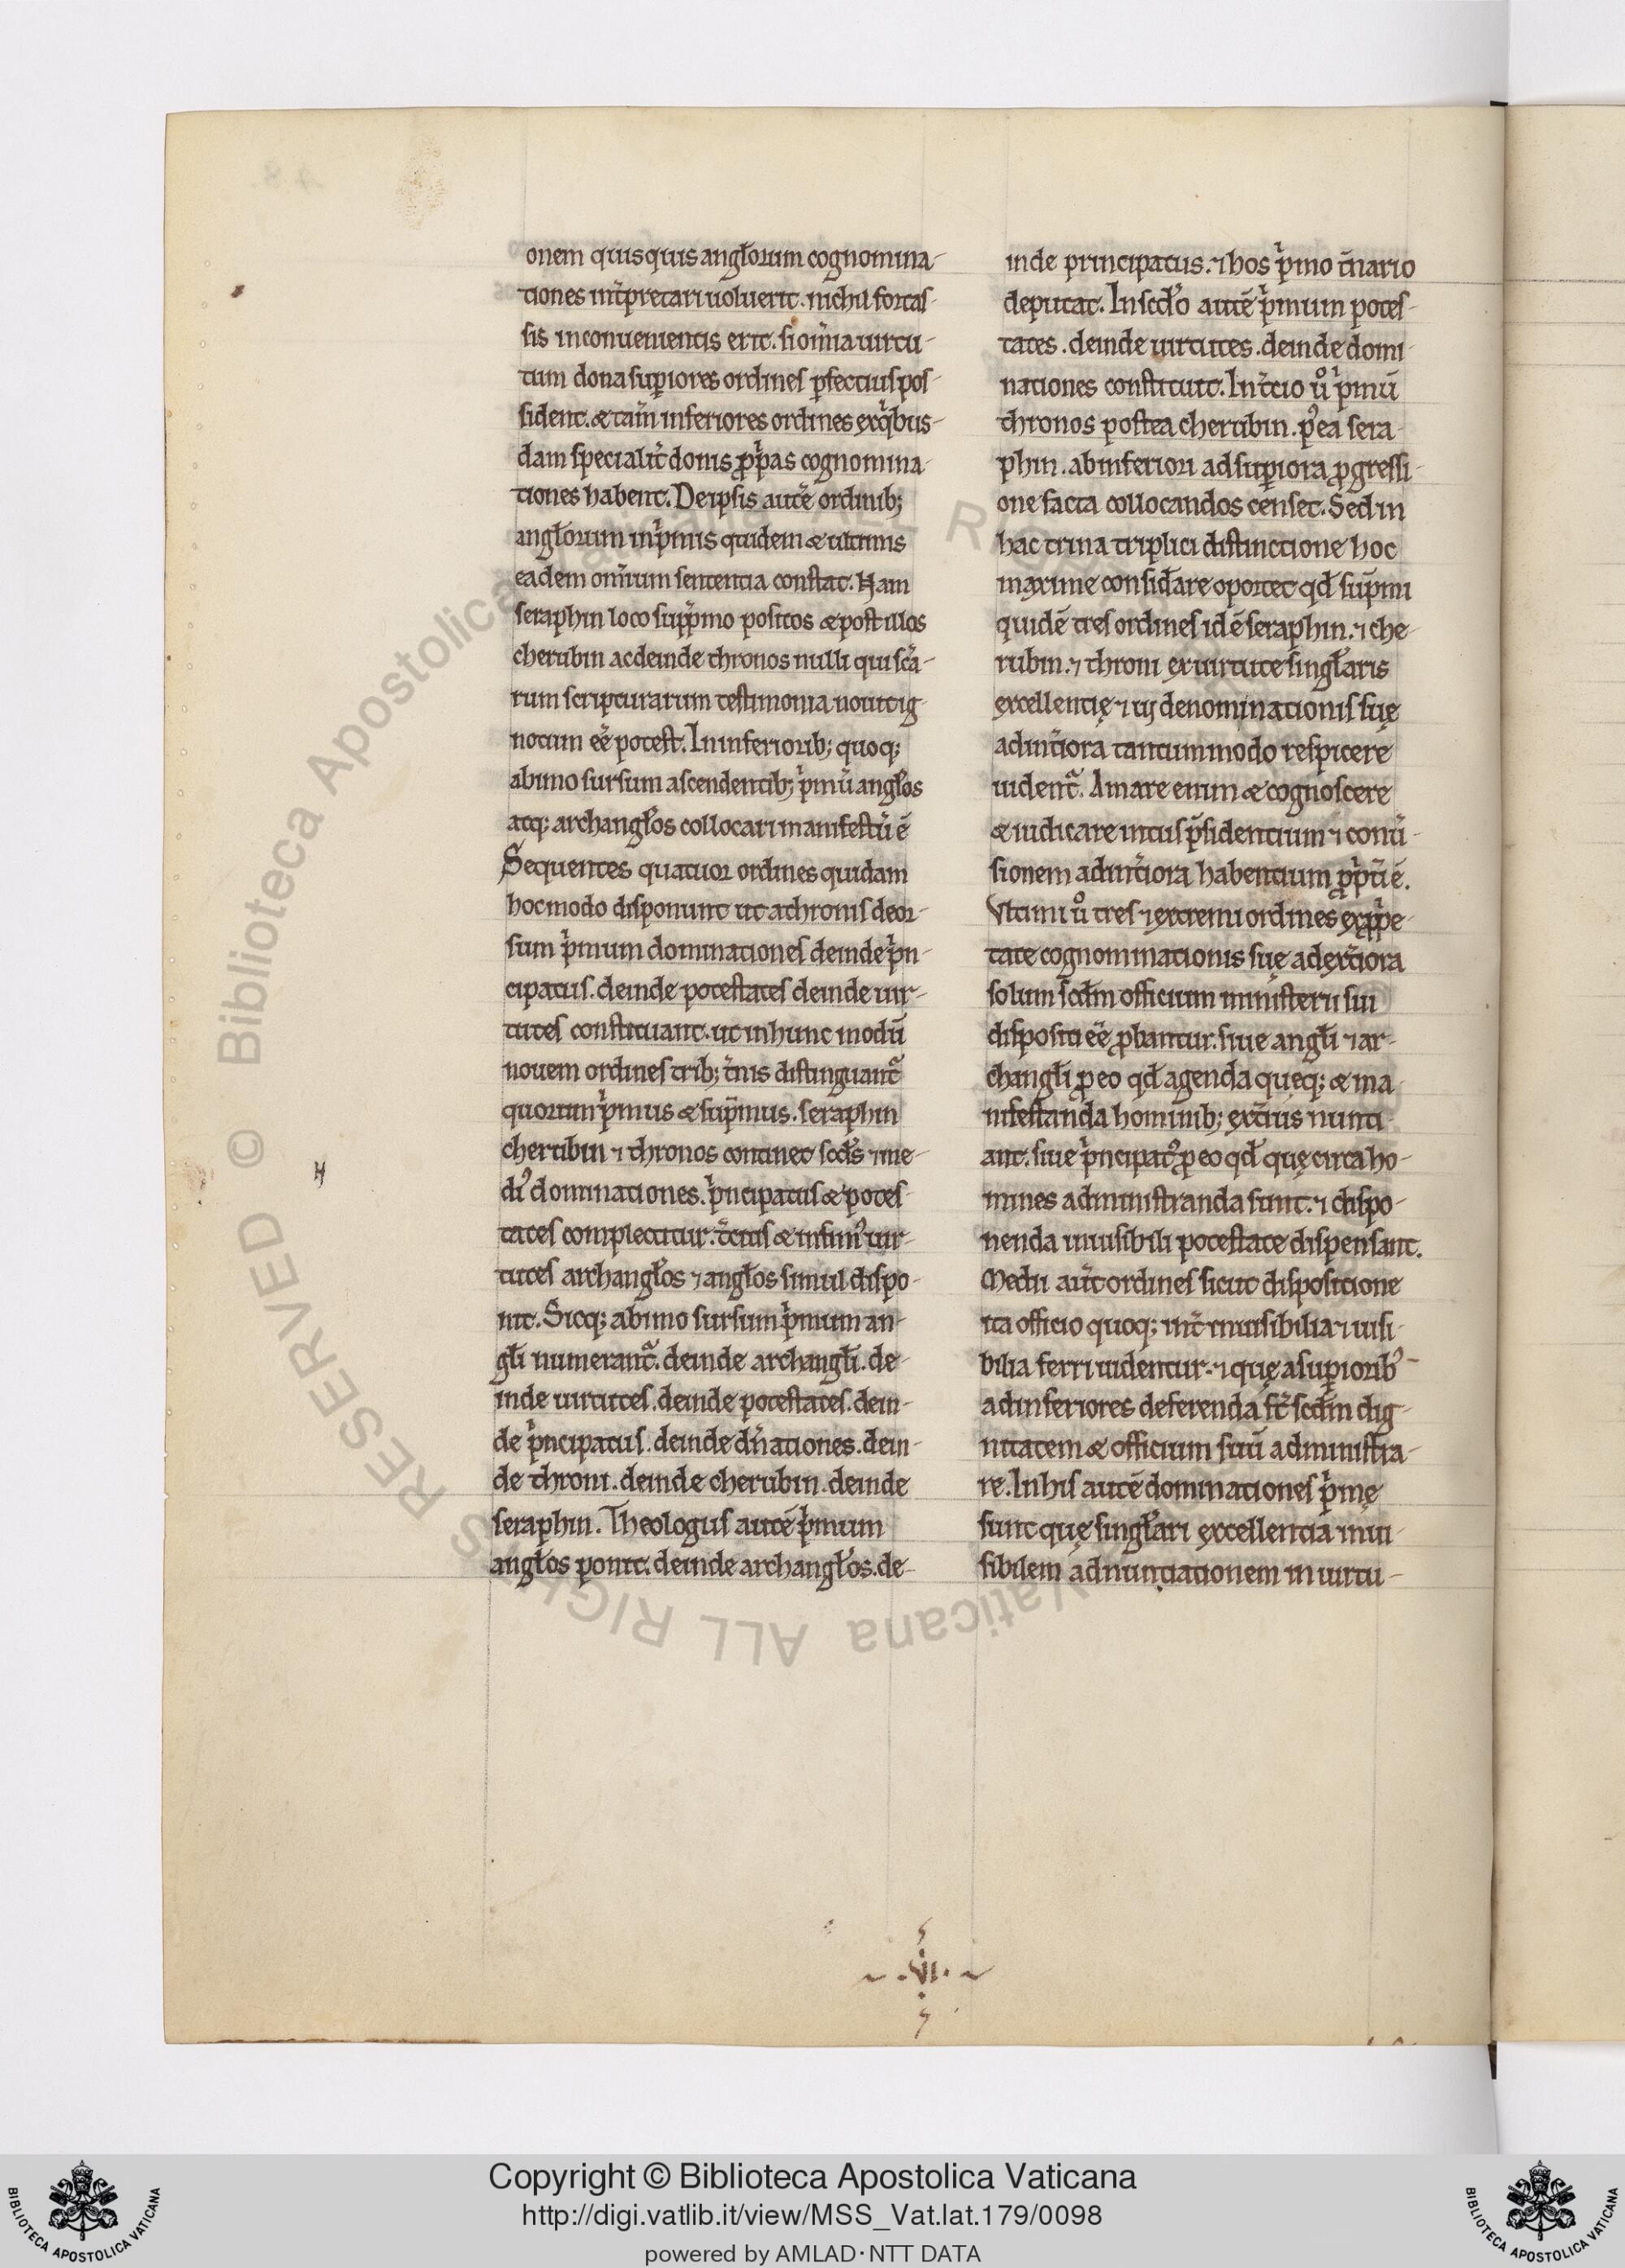 onem quisquis angłorum cognomina-
tiones int̄pretari uoluerit. nichil fortas-
sis inconuenientis erit. si om̄ia uirtu-
tum dona sup̱iores ordines p̱fectius pos-
sident. & tam̄ inferiores ordines ex q̇bus-
dam specialit̄ donis p̱pas cognomina-
tiones habent. De ipsis autē ordinib;
angłorum in ṗmis quidem & ultimis
eadem om̄ium sententia constat. Nam
seraphin loco sup̱ṗmo positos & post illos
cherubin ac deinde thronos nulli qui sc̄a-
rum scripturarum testimonia nouit ig-
notum eē potest. In inferiorib; quoq;
ab imo sursum ascendentib; ṗmū angłos
atq; archangłos collocari manifestū ē
Sequentes quatuor ordines quidam
hoc modo disponunt ut a thronis deor-
sum ṗmum dominationes deinde ṗn-
cipatus. deinde potestates deinde uir-
tutes constituant. ut in hunc modū
nouem ordines trib; t̄nis distinguant̄
quorum ṗmus & sup̄mus. seraphin
cherubin ⁊ thronos continet scd̄s ⁊ me-
H
diꝰ dominationes. ṗncipatus & potes-
tates complectitur. t̄cius & infimꝰ uir-
tutes archangłos ⁊ angłos simul dispo-
nit. Sicq; ab imo sursum ṗmum an-
głi numerant̄. deinde archangłi. de-
inde uirtutes. deinde potestates. dein-
de ṗncipatus. deinde dn̄ationes. dein-
de throni. deinde cherubin. deinde
seraphin. Theologus autē ṗmum
angłos ponit. deinde archangłos. de-
inde principatus. ⁊ hos ṗmo t̄nario
deputat. In scd̄o autē ṗmum potes-
tates. deinde uirtutes. deinde domi-
nationes constituit. In t̄cio ů ṗmū
thronos postea cherubin. pꝰea sera-
phin. ab inferiori ad sup̱iora p̱gressi-
one facta collocandos censet. Sed in
hac trina triplici distinctione hoc
maxime consid̄are oportet qd̄ sup̄mi
quidē tres ordines idē seraphin. ⁊ che-
rubin. ⁊ throni ex uirtute singłaris
excellentię ⁊ ui denominationis suę
ad int̄iora tantummodo respicere
uident̄. Amare enim & cognoscere
& iudicare intus p̄sidentium ⁊ conū-
sionem ad int̄iora habentium p̱ṗū ē.
Vltimi ů tres ⁊ extremi ordines ex p̱ṗe-
tate cognominationis suę ad ext̄iora
solum scd̄m officium ministerii sui
dispositi eē p̱bantur. siue angłi ⁊ ar-
changłi p̱ eo qd̄ agenda queq; & ma-
nifestanda hominib; ext̄ius nunti-
ant. siue ṗncipatꝰ p̱ eo qd̄ quę circa ho-
mines administranda sunt. ⁊ dispo-
nenda inuisibili potestate dispensant.
Medii aut̄ ordines sicut dispositione
ita officio quoq; int̄ inuisibilia ⁊ uisi-
bilia ferri uidentur. ⁊ quę a sup̱ioribꝰ
ad inferiores deferenda st̄ scd̄m dig-
nitatem & officium suū administra-
re. In his autē dominationes ṗmę
sunt quę singłari excellentia inui-
sibilem adnuntiationem in uirtu-
.VI.
© Biblioteca Apostolica Vaticana ALL RIGHTS RESERVED
Copyright © Biblioteca Apostolica Vaticana
http://digi.vatlib.it/view/MSS_Vat.lat.179/0098
powered by AMLAD·NTT DATA
BIBLIOTECA APOSTOLICA VATICANA
BIBLIOTECA APOSTOLICA VATICANA